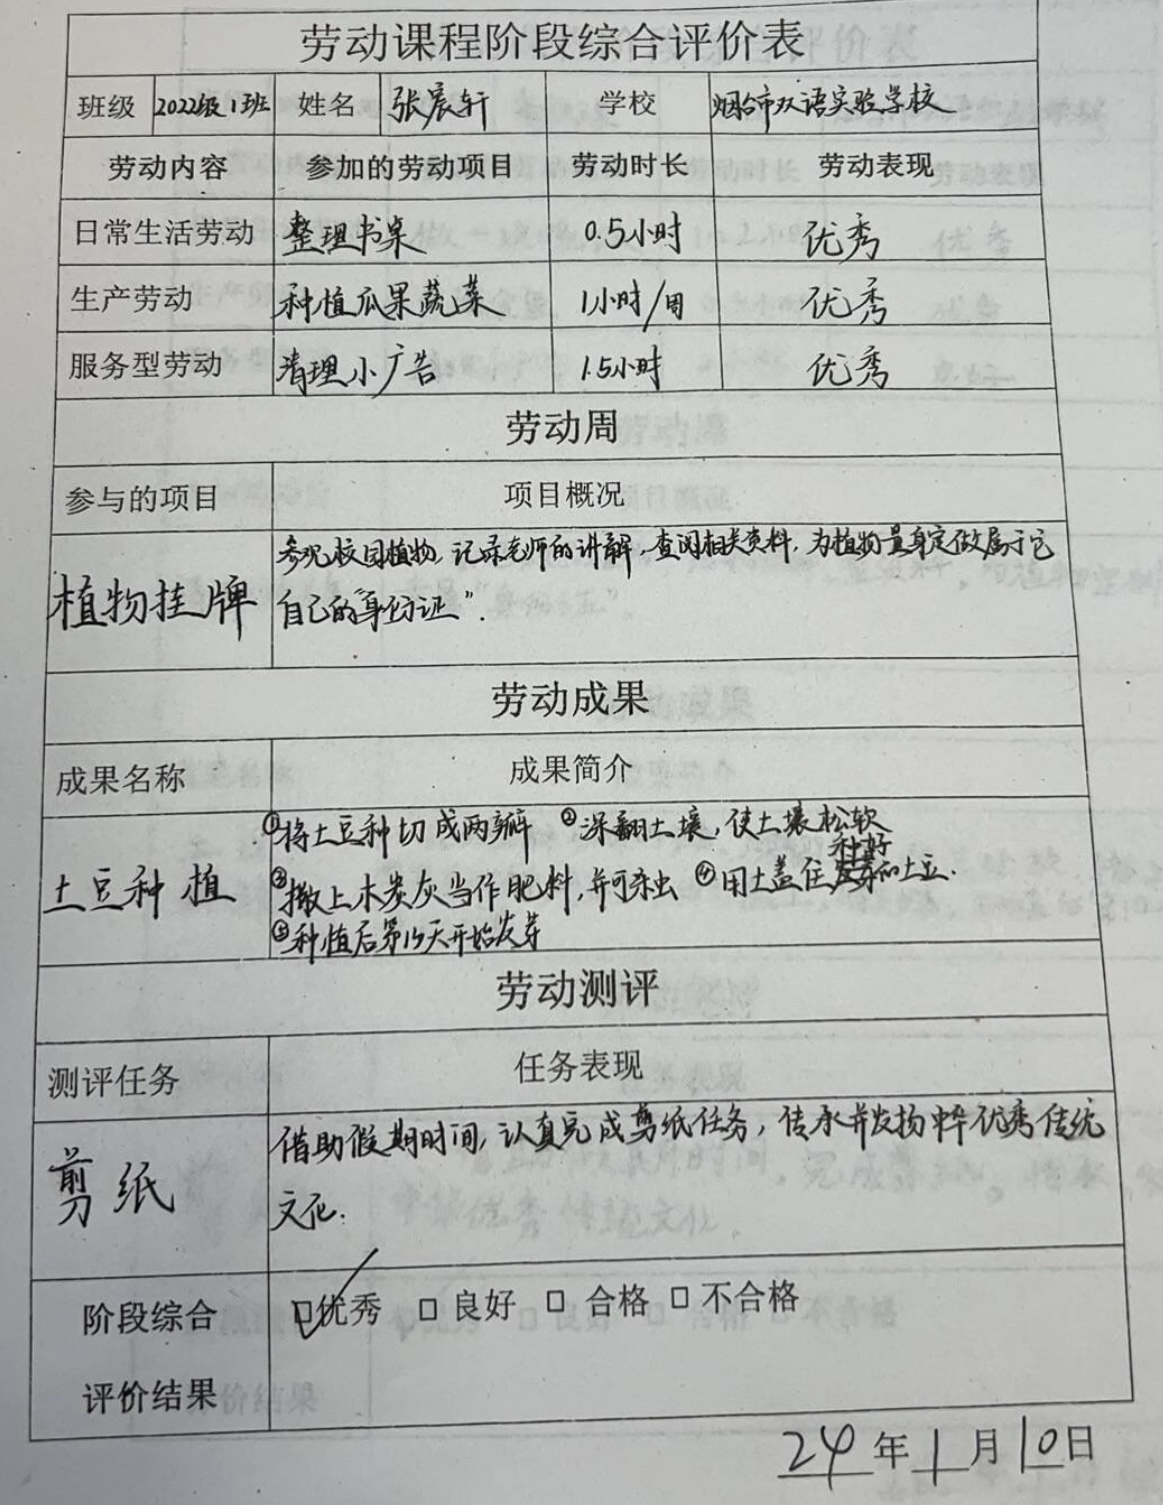 劳动课程阶段综合评价表
班级 2022级1班 姓名 张宸轩 学校 烟台市双语实验学校
劳动内容 参加的劳动项目 劳动时长 劳动表现
日常生活劳动 整理书桌 0.5小时 优秀
生产劳动 种植瓜果蔬菜 1小时/周 优秀
服务型劳动 清理小广告 1.5小时 优秀
劳动周
参与的项目 项目概况
植物挂牌 参观校园植物,记录老师的讲解,查阅相关资料,为植物量身定做属于它
自己的"身份证".
劳动成果
成果名称 成果简介
①将土豆种切成两瓣 ②深翻土壤,使土壤松软
土豆种植 ③撒上木炭灰当作肥料,并可杀虫 ④用土盖住种好的土豆.
⑤种植后第15天开始发芽
劳动测评
测评任务 任务表现
剪纸 借助假期时间,认真完成剪纸任务,传承并发扬中华优秀传统
文化.
阶段综合 □优秀 □ 良好 □ 合格 □ 不合格
评价结果
24年1月10日